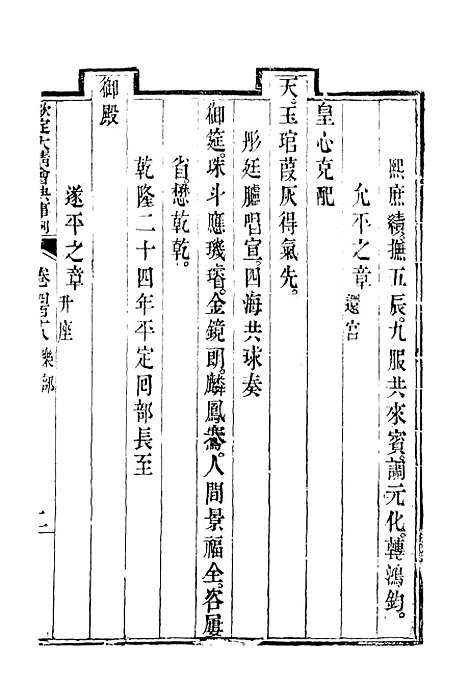 熙庶績。撫五辰。九服共來賓。調元化。轉鴻鈞。
允平之章還宮
皇心克配
天。玉琯葭灰得氣先。
彤廷臚唱宣。四海共球奏
御筵。珠斗應璣璿。金鏡朗。麟鳳騫。人間景福全。咨屢
省懋乾乾。
乾隆二十四年平定回部長至
御殿
遂平之章升座
欽定大清會典事例
卷 樂部